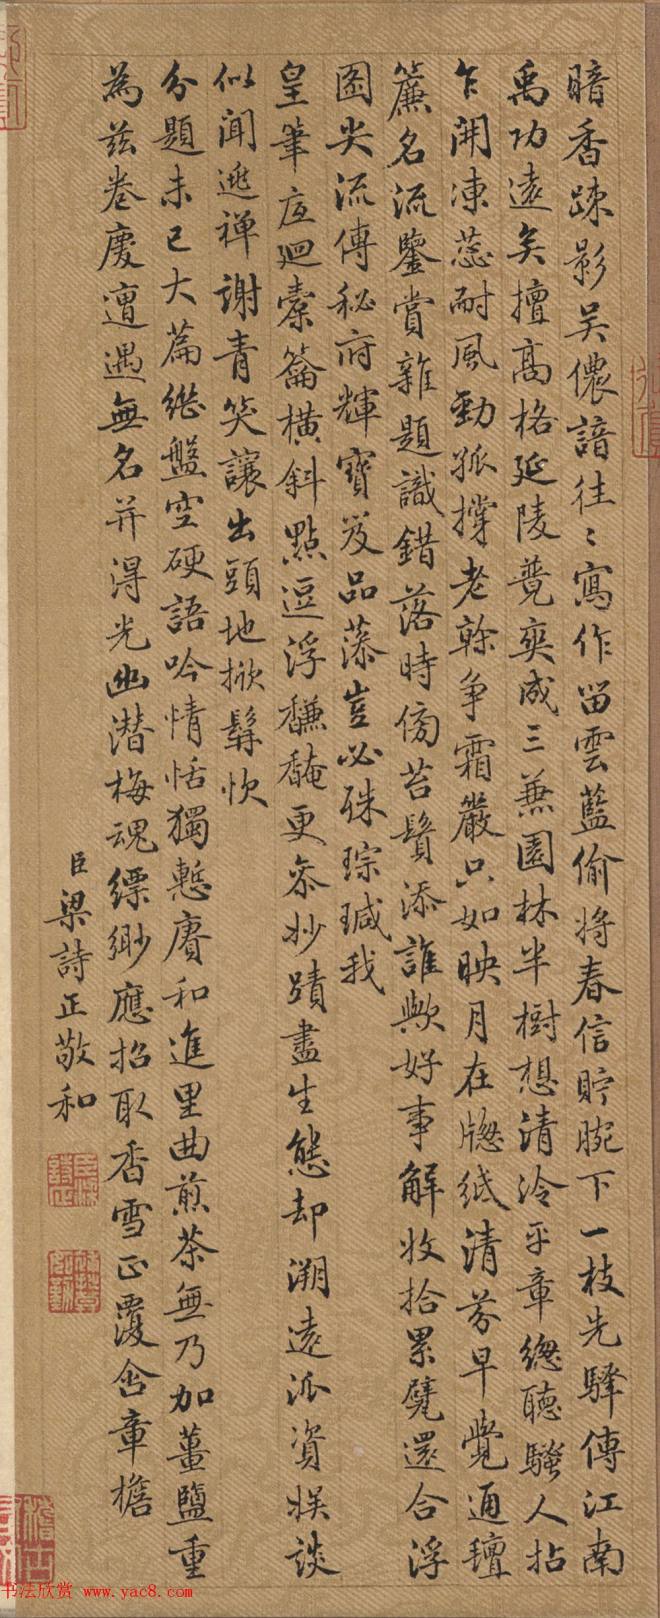 暗香疎影吴儂諳往〻寫作留雲藍偷将春信貯腕下一枝先驛傳江南
禹功遠矣擅高格延陵競爽成三兼園林半樹想清泠平章總聽騷人拈
乍開凍蕊耐風勁孤撑老榦争霜嚴只如映月在牕紙清芬早覺通㻞
簾名流鑒賞雜題識錯落時傍苔鬚添誰歟好事解收拾累甓還合浮
圖尖流傳秘府輝寶笈品藻豈必殊琮瑊我
皇筆底廻橐籥横斜點逗浮馦馣更叅妙蹟盡生態却溯遠派資娱談
似聞逃禅謝青笑讓出頭地掀髯忺
分題未已大篇継盤空硬語吟情恬獨慙賡和進里曲煎茶無乃加薑鹽重
為兹卷慶遭遇無名并得光幽潜梅魂縹緲應招取香雪正覆含章檐
臣梁詩正敬和
书法欣赏 www.yac8.com